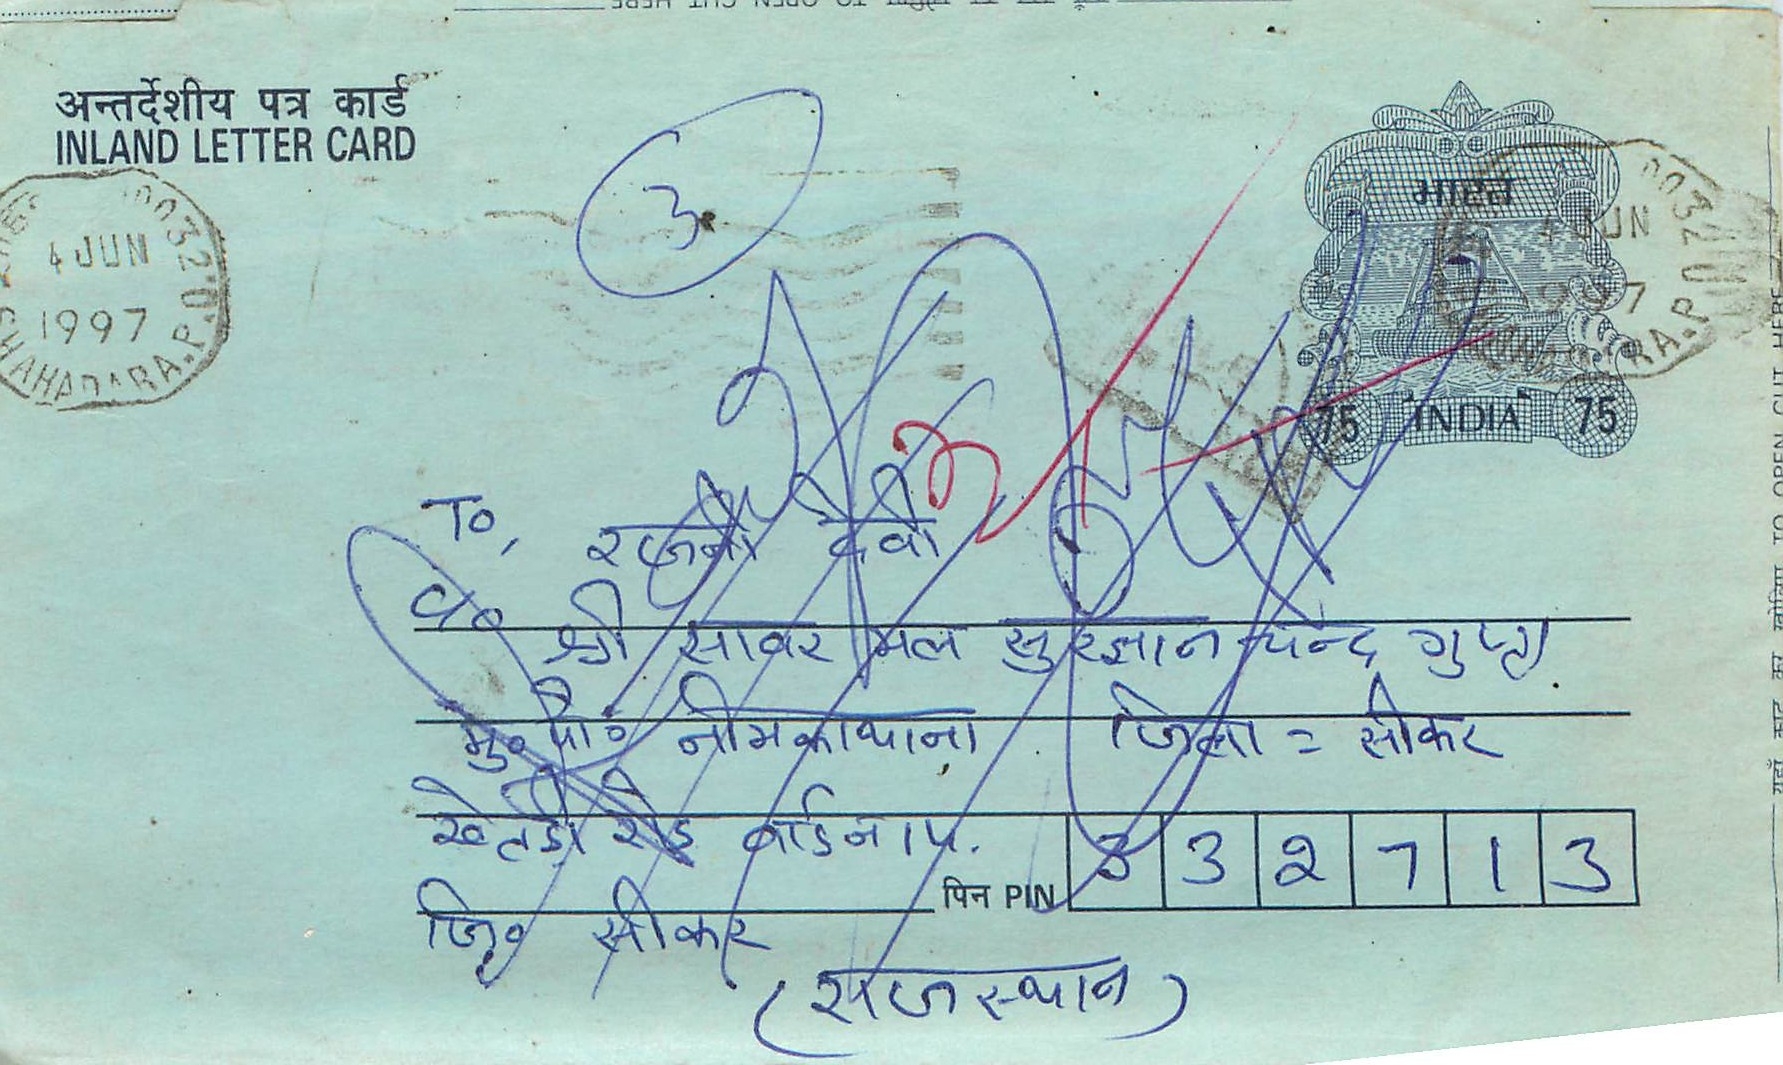 TO OPEN CUT HERE
अन्तर्देशीय पत्र कार्ड
INLAND LETTER CARD
3
4 JUN
1997
SHAHADARA.P.O
110032
भारत
75 INDIA 75
4 JUN
1997
RA.P.O
0032
To,
रजनी देवी
व०
श्री सावर मल सुरज्ञान चन्द गुप्ता
मु० पो० नीमकाथाना जिला = सीकर
खेतडी रोड वार्ड न 14.
पिन PIN 332713
जि० सीकर
(राजस्थान)
TO OPEN CUT HERE